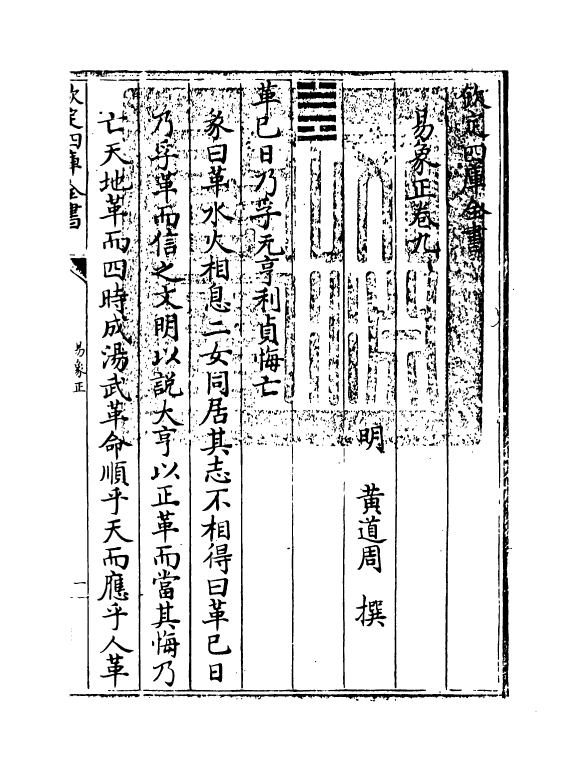 欽定四庫全書
易象正卷九
明 黄道周 撰
革巳日乃孚元亨利貞悔亡
彖曰革水火相息二女同居其志不相得曰革巳日
乃孚革而信之文明以說大亨以正革而當其悔乃
亡天地革而四時成湯武革命順乎天而應乎人革
欽定四庫全書
易象正
一